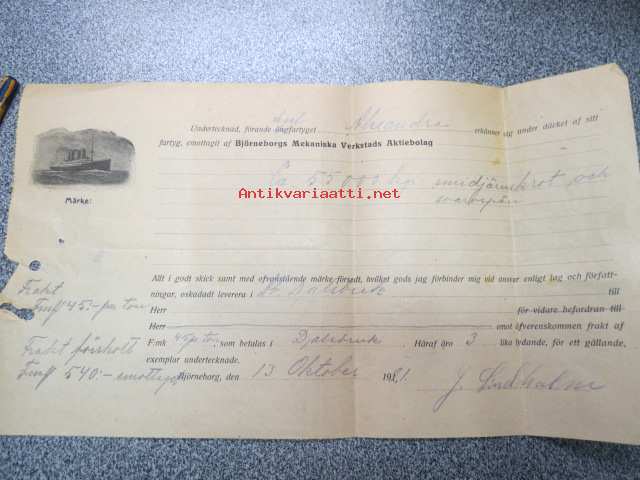 Undertecknad, förande ångfartyget Alexandra erkänner sig under däcket af sitt
fartyg, emottagit af Björneborgs Mekaniska Verkstads Aktiebolag
Ca 55000 kg smidjärnskrot och
svarvspån
Antikvariaatti.net
Märke:
Allt i godt skick samt med ofvanstående märke försedt, hvilket gods jag förbinder mig vid ansvar enligt lag och författ-
ningar, oskadadt leverera i Dalsbruk till
Herr för vidare befordran till
Herr emot öfverenskommen frakt af
Fmk 45 p ton, som betalas i Dalsbruk. Häraf äro 3 lika lydande, för ett gällande,
exemplar undertecknade.
Björneborg, den 13 Oktober 1921.
J. Lindholm
Frakt
Fmk 45:- per ton
Frakt
Fmk 540:- emottaget